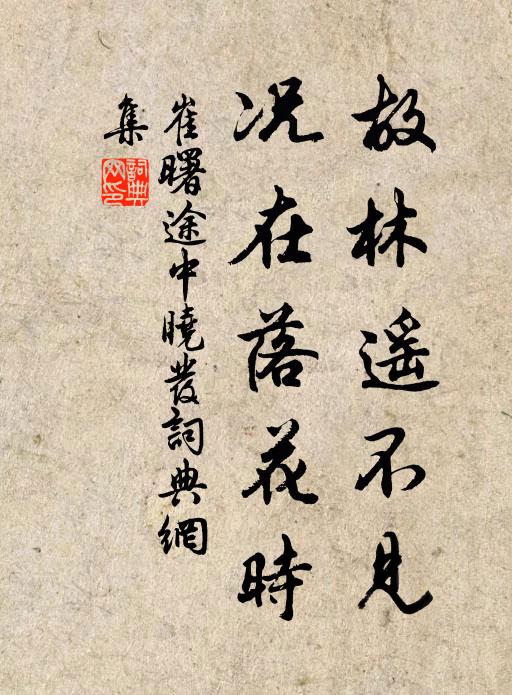 故林遥不見
况在落花時
崔曙途中曉發詞典網
集
詞典网印